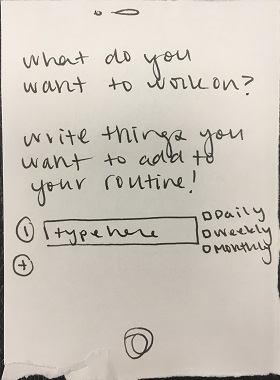 what do you
want to work on?
write things you
want to add to
your routine!
- type here
□ Daily
□ weekly
□ monthly
+